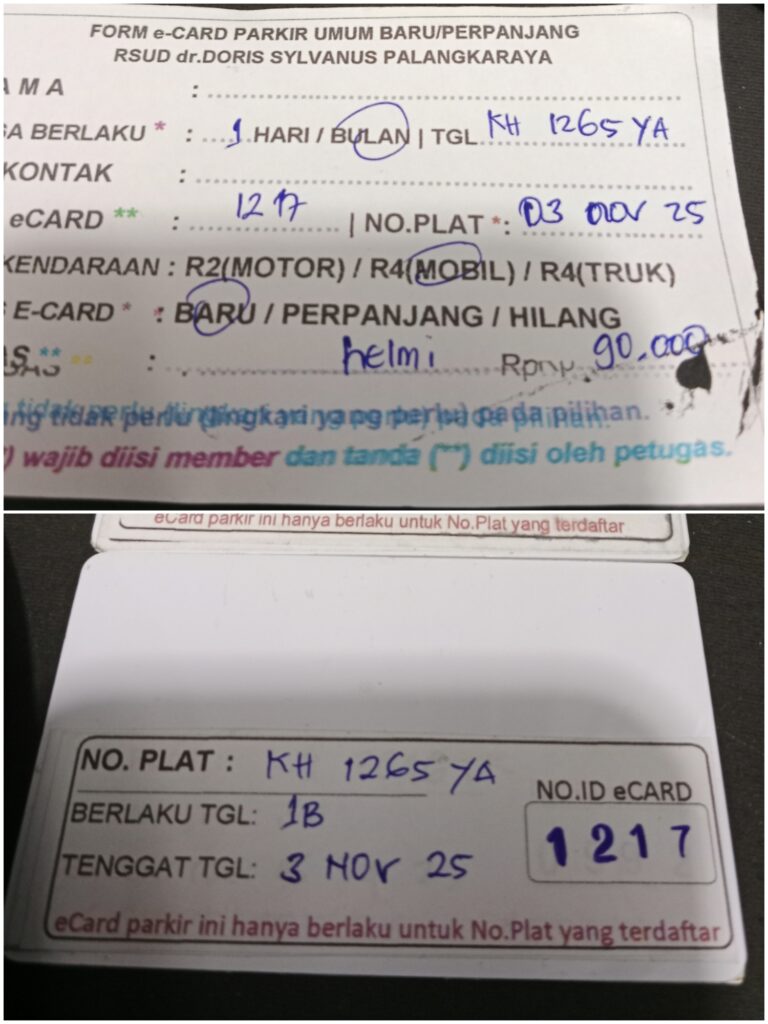 FORM e-CARD PARKIR UMUM BARU/PERPANJANG
RSUD dr.DORIS SYLVANUS PALANGKARAYA
A M A :
A BERLAKU * : 1 HARI / BULAN | TGL KH 1265 YA
KONTAK :
eCARD ** : 1217 | NO.PLAT *: 03 nov 25
KENDARAAN : R2(MOTOR) / R4(MOBIL) / R4(TRUK)
E-CARD * : BARU / PERPANJANG / HILANG
** : helmi Rp 90.000
ng tidak perlu (lingkari yang perlu) pada pilihan.
) wajib diisi member dan tanda (**) diisi oleh petugas.
eCard parkir ini hanya berlaku untuk No.Plat yang terdaftar
NO. PLAT : KH 1265 YA
NO.ID eCARD
BERLAKU TGL: 1B
1217
TENGGAT TGL: 3 NOV 25
eCard parkir ini hanya berlaku untuk No.Plat yang terdaftar